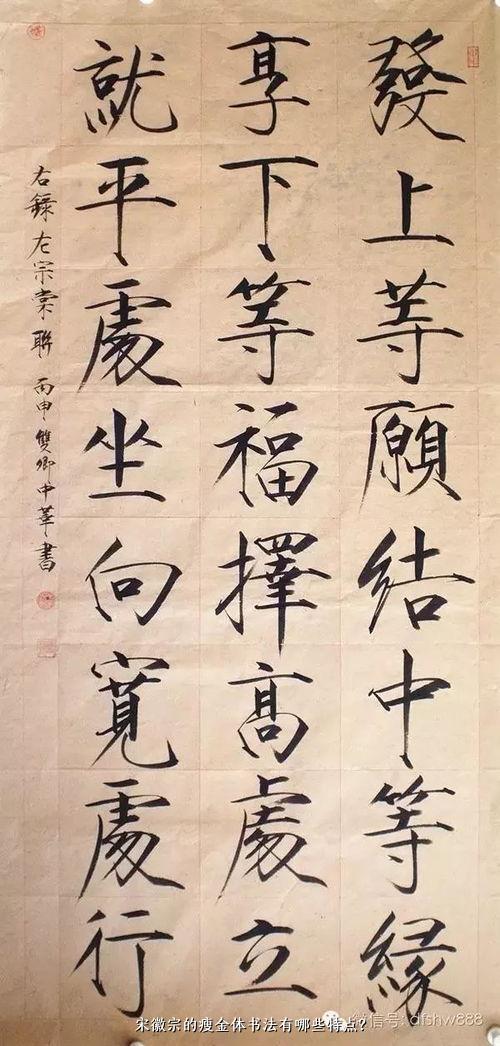 發上等願結中等緣
享下等福擇高處立
就平處坐向寬處行
右錄左宗棠聯 丙申雙卿中華書
微信号: dfshw888
宋徽宗的瘦金体书法有哪些特点?